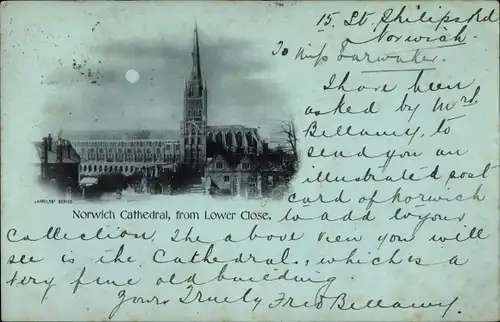 15. St. Philips Rd
Norwich.
To Miss Tarwater.
I have been
asked by Mrs
Bellamy, to
send you an
illustrated post
card of Norwich
to add to your
collection. The above view you will
see is the Cathedral, which is a
very fine old building.
Yours Truely Fred Bellamy.
"JARROLDS' SERIES
Norwich Cathedral, from Lower Close.